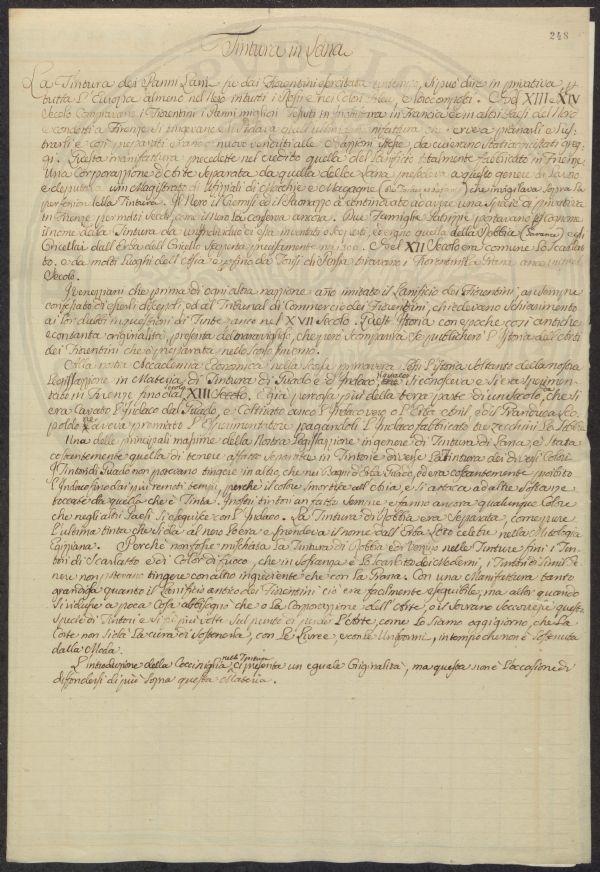 248
Tintura in Lana
La Tintura dei Panni Lani fu dai Fiorentini esercitata un tempo, si può dire in privativa
tutta l'Europa almeno nel Nero in tutti i Rossi e nei colori. Nel XIII e XIV
Secolo Compravano i Fiorentini i Panni migliori Tessuti in Inghilterra in Francia ed in altri Paesi del Nord
e condotti a Firenze si tingevano e si dava quell'ultima manifattura che era di pianarli e lus-
trarli e così preparati erano di nuovo venduti alle Nazioni stesse, da cui erano stati acquistati greg-
gi. Questa manifattura precedette nel credito quella del Lanificio totalmente fabbricato in Firenze
Una Corporazione d'Arte Separata da quella della Lana presedeva a questo genere di lavoro
e deputava un Magistrato di Uffiziali di Macchie e Magagne che invigilava sopra la
perfezione della Tintura. Il Nero il Cremisi ed il Paonazzo à continuato ad avere una specie di privativa
in Firenze per molti Secoli, come il Nero la conserva ancora. Due Famiglie Patrizie portavano e portano
il nome dalla Tintura da un individuo di essa inventata o scoperta, e sono quella della Robbia (Garance) e gli
Oricellai dall'Erba dell'Oricello Scoperta. Nel XII Secolo era comune lo Scarlat-
to, e da molti Luoghi dell'Asia e persino da Tiravano i Fiorentini la Grana anco nel
Secolo.
I Veneziani che prima di ogni altra nazione ànno imitato il Lanificio dei Fiorentini, àn sempre
confessato di esserli discepoli, ed al Tribunal di Commercio dei Fiorentini, chiedevano Schiarimento
ai lor dubbi in questioni di Tinte anco nel XVII Secolo. La Istoria con epoche così antiche
e costante originalità, presenta del maraviglioso, che però scomparirà se pubblicherò l'Istoria dell'Arti
dei Fiorentini che ò preparata nello scorso Inverno.
Alla nostra Accademia Economica nella scorsa primavera lessi l'Istoria soltanto della nostra
Legislazione in Materia di Tintura di Guado e d'Indaco. Si conosceva e si era sperimen-
tato in Firenze fino dal XIII Secolo, e già per essa più della terza parte di un Secolo, che si
era Cavato l'Indaco dal Guado, e Coltivato anco l'Indaco vero o l'Erba Anil, e io il Granduca Leo-
poldo ne aveva premiato l'Esperimentatore pagandoli l'Indaco fabbricato tre zecchini la libbra
Una delle principali massime della Nostra Legislazione in genere di Tintura di Lana, è stata
costantemente quella di tenere affatto separate in Tintorie diverse La Tintura dei diversi Colori
I Tintori di Guado non potevano tingere in altro, che nei Bagni d'Esta Guado, ed era costantemente proibito
l'Indaco fino dai più remoti tempi, perchè il colore smontava all'aria, e si attaca ad altre sostanze
toccate da quella che è Tinta. I nostri tintori àn fatto sempre e fanno ancora qualunque Colore
che negli altri Paesi si eseguisce con l'Indaco. La Tintura di Robbia era Separata, come pure
l'ultima tinta che si dà al nero lo era e prendeva il nome dall'Erba Loto celebre nella Mitologia
Egiziana. Perchè non fosse mischiata la Tintura di Robbia o di Verzino nelle Tinture fini i Tin-
tori di Scarlatto e di Color di fuoco, che in sostanza è lo Scarlatto dei Moderni, i Tintori di simil Ge-
nere non potevano tingere con altro ingrediente che con la Grana. Con una Manifattura tanto
grandiosa quanto il Lanificio antico dei Fiorentini ciò era facilmente eseguibile, ma allor quando
si ridusse a poca cosa abbisognò che o la Corporazione dell'Arte, o il Sovrano soccorresse questa
specie di Tintori e si fu più volte sul punto di perder l'Arte, come lo siamo oggigiorno, che La
Corte non si dà la cura di sostenerla, con Le Livree, e con le Uniformi, in tempo che non è sostenuta
dalla Moda.
L'introduzione della Cocciniglia nelle Tinture ci presenta un eguale Originalità, ma questa non è l'occasione di
diffondersi di più sopra questa Materia.